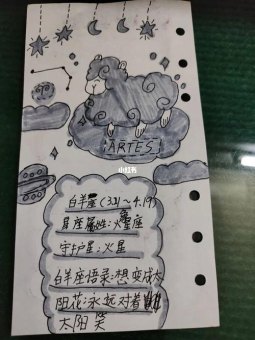 ARTES
小红书
白羊座(3.21~4.19)
星座属性:火象座
守护星:火星
白羊座语录:想变成太
阳花:永远对着
太阳笑